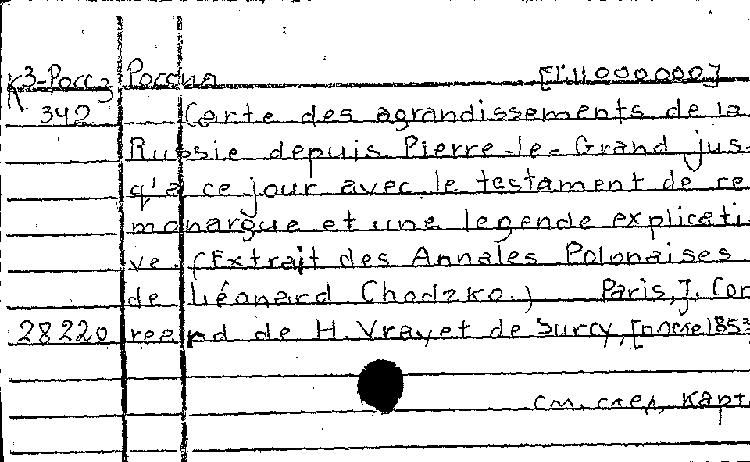 К3-Росс Россия [1:11000000]
342 Carte des agrandissements de la
Russie depuis Pierre-le-Grand jus-
q'a ce jour avec le testament de ce
monarque et une legende explicati-
ve (Extrait des Annales Polonaises
de Léonard Chodzko.) Paris, J. Cor
28220 reard de H. Vrayet de Surcy, [после 1853
см. след. карт.